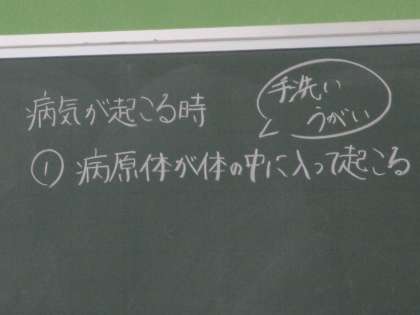 病気が起こる時
手洗い
うがい
① 病原体が体の中に入って起こる